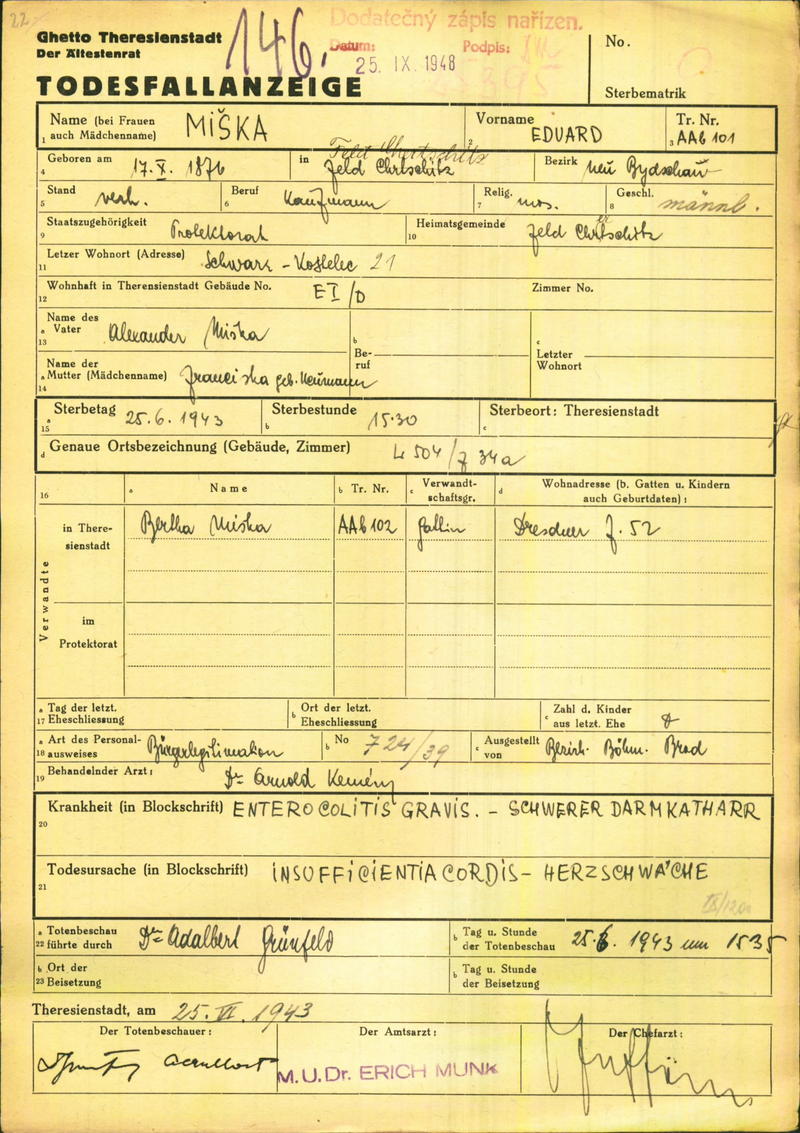 22
Ghetto Theresienstadt
Der Ältestenrat
146.
Dodatečný zápis nařízen.
Datum: Podpis:
25. IX. 1948
No.
Sterbematrik
TODESFALLANZEIGE
1 Name (bei Frauen auch Mädchenname) MIŠKA
2 Vorname EDUARD
3 Tr. Nr. AAb 101
4 Geboren am 17.X. 1876 in Feld Chrtschitz
Bezirk Neu Bydschau
5 Stand verh.
6 Beruf Kaufmann
7 Relig. mos.
8 Geschl. männl.
9 Staatszugehörigkeit Protektorat
10 Heimatsgemeinde Feld Chrtschitz
11 Letzer Wohnort (Adresse) Schwarz - Kostelec 21
12 Wohnhaft in Therensienstadt Gebäude No. EI/D
Zimmer No.
13 a Name des Vater Alexander Miška
b Beruf
c Letzter Wohnort
14 a Name der Mutter (Mädchenname) Franciska geb. Neumann
15 a Sterbetag 25.6.1943
b Sterbestunde 15·30
c Sterbeort: Theresienstadt
d Genaue Ortsbezeichnung (Gebäude, Zimmer) L 504/Z 34a
16 a Name
b Tr. Nr.
c Verwandtschaftsgr.
d Wohnadresse (b. Gatten u. Kindern auch Geburtdaten):
Verwandte
in Theresienstadt
Bertha Miska AAb 102 Gattin Dresdner J. 52
im Protektorat
17 a Tag der letzt. Eheschliessung
b Ort der letzt. Eheschliessung
c Zahl d. Kinder aus letzt. Ehe
18 a Art des Personalausweises Bürgerlegitimation
b No 724/39
c Ausgestellt von Bezirk. Böhm. Brod
19 Behandelnder Arzt: Dr. Arnold Kemény
20 Krankheit (in Blockschrift) ENTEROCOLITIS GRAVIS. - SCHWERER DARMKATHARR
21 Todesursache (in Blockschrift) INSUFFICIENTIA CORDIS - HERZSCHWÄCHE
22 a Totenbeschau führte durch Dr. Adalbert Grünfeld
b Tag u. Stunde der Totenbeschau 25.6. 1943 um 1535
23 b Ort der Beisetzung
b Tag u. Stunde der Beisetzung
Theresienstadt, am 25.VI.1943
Der Totenbeschauer:
Der Amtsarzt:
Der Chefarzt:
M.U.Dr. ERICH MUNK